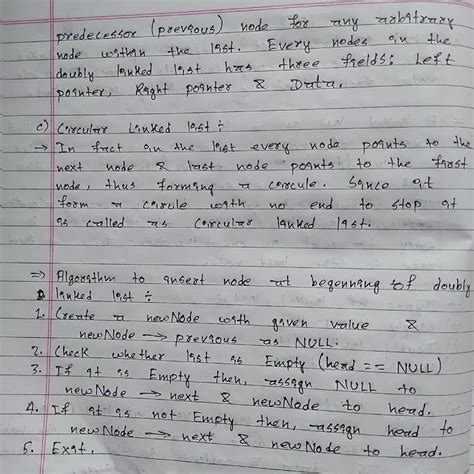 predecessor (previous) node for any arbitrary
node within the list. Every nodes in the
doubly linked list has three fields: Left
pointer, Right pointer & Data.
c) Circular Linked list :-
→ In fact in the list every node points to the
next node & last node points to the first
node, thus forming a circule. Since it
form a circule with no end to stop it
is called as circular linked list.
⇒ Algorithm to insert node at beginning of doubly
linked list :-
1. Create a newNode with given value &
newNode → previous as NULL.
2. Check whether list is Empty (head == NULL)
3. If it is Empty then, assign NULL to
newNode → next & newNode to head.
4. If it is not Empty then, assign head to
newNode → next & newNode to head.
5. Exit.